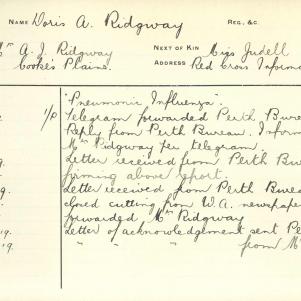 NAME Doris A. Ridgway REG., &C.
Mrs A. J. Ridgway NEXT OF KIN Miss Judell
Cooke's Plains. ADDRESS Red Cross Informa
"Pneumonic Influenza".
1/P Telegram forwarded Perth Bure
Reply from Perth Bureau. Inform
Mrs Ridgway per telegram.
Letter received from Perth Bur
firming above report.
9. Letter received from Perth Bure
closed cutting from W.A. newspape
forwarded Mrs Ridgway
19. Letter of acknowledgement sent Pe
19. " " " from M